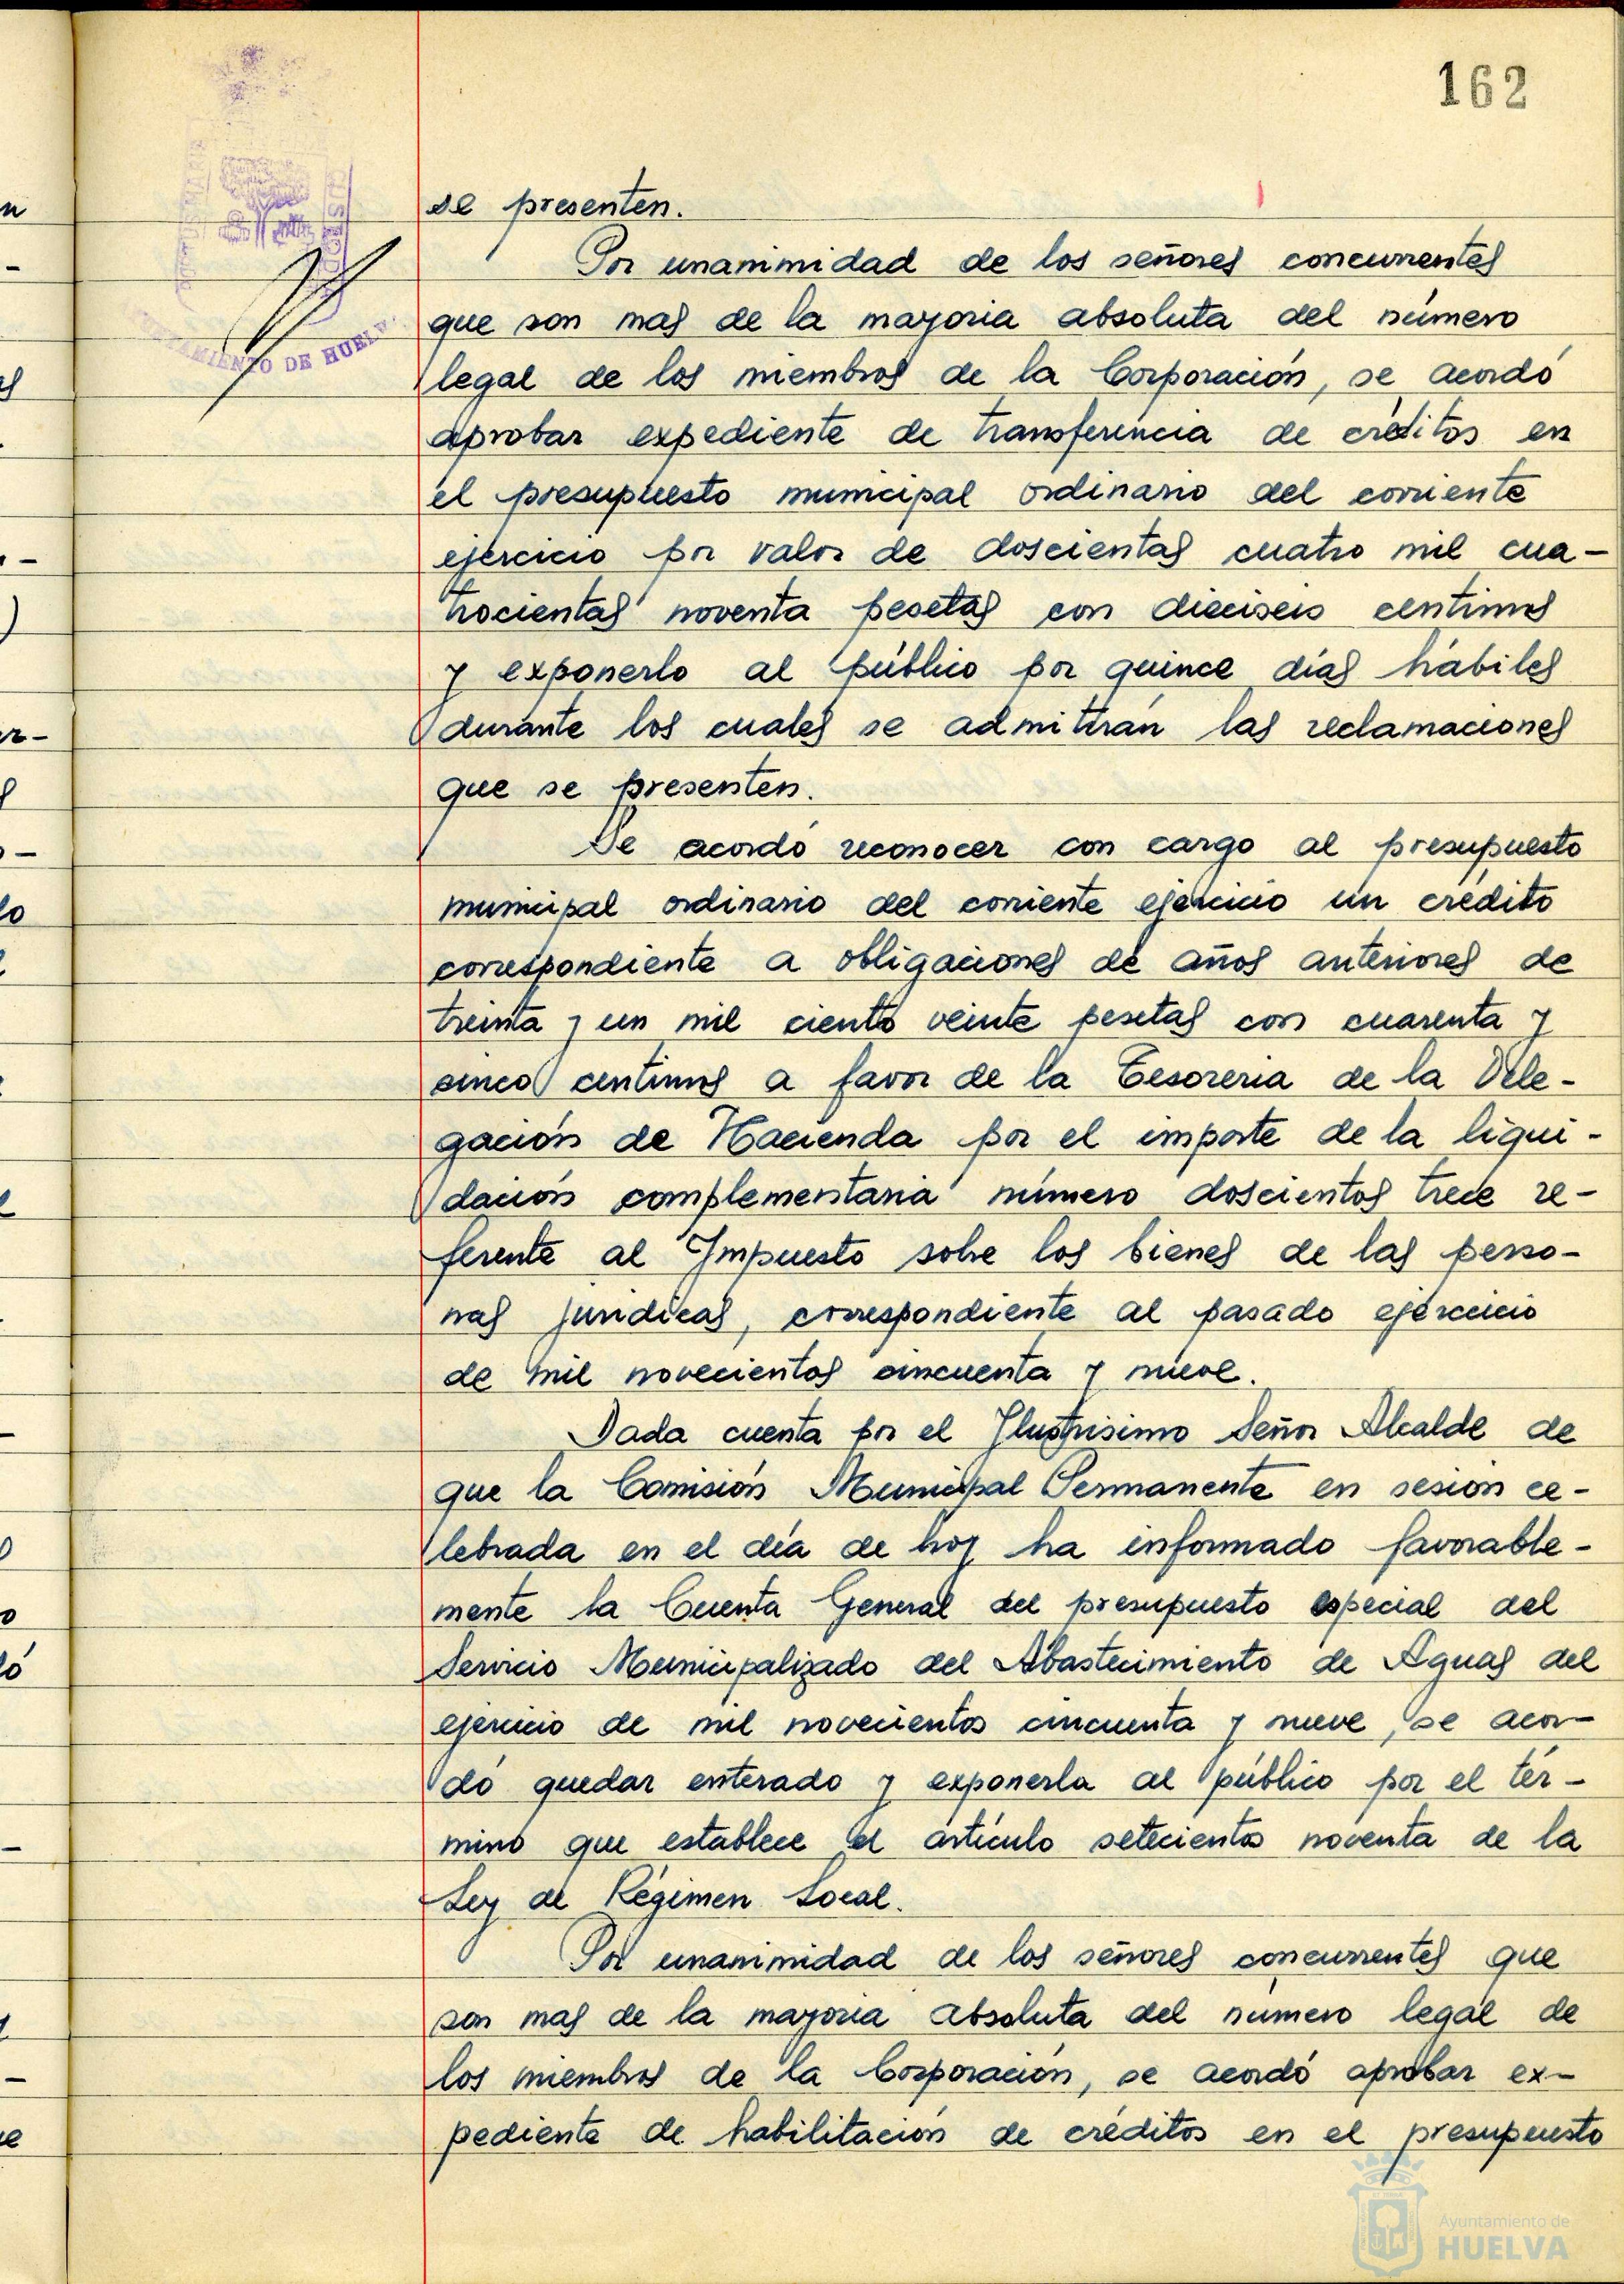 162
se presenten.
Por unanimidad de los señores concurrentes
que son mas de la mayoria absoluta del número
legal de los miembros de la Corporación, se acordó
aprobar expediente de transferencia de créditos en
el presupuesto municipal ordinario del corriente
ejercicio por valor de doscientas cuatro mil cua-
trocientas noventa pesetas con dieciseis centimos
y exponerlo al público por quince días hábiles
durante los cuales se admitirán las reclamaciones
que se presenten.
Se acordó reconocer con cargo al presupuesto
municipal ordinario del corriente ejercicio un crédito
correspondiente a obligaciones de años anteriores de
treinta y un mil ciento veinte pesetas con cuarenta y
cinco centimos a favor de la Tesoreria de la Dele-
gación de Hacienda por el importe de la liqui-
dación complementaria número doscientos trece re-
ferente al Impuesto sobre los bienes de las perso-
nas juridicas, correspondiente al pasado ejercicio
de mil novecientos cincuenta y nueve.
Dada cuenta por el Ilustrisimo Señor Alcalde de
que la Comisión Municipal Permanente en sesión ce-
lebrada en el día de hoy ha informado favorable-
mente la Cuenta General del presupuesto especial del
Servicio Municipalizado del Abastecimiento de Aguas del
ejercicio de mil novecientos cincuenta y nueve, se acor-
dó quedar enterado y exponerla al público por el tér-
mino que establece el artículo setecientos noventa de la
Ley de Régimen Local.
Por unanimidad de los señores concurrentes que
son mas de la mayoria absoluta del número legal de
los miembros de la Corporación, se acordó aprobar ex-
pediente de habilitación de créditos en el presupuesto
AMIENTO DE HUELV
Ayuntamiento de
HUELVA